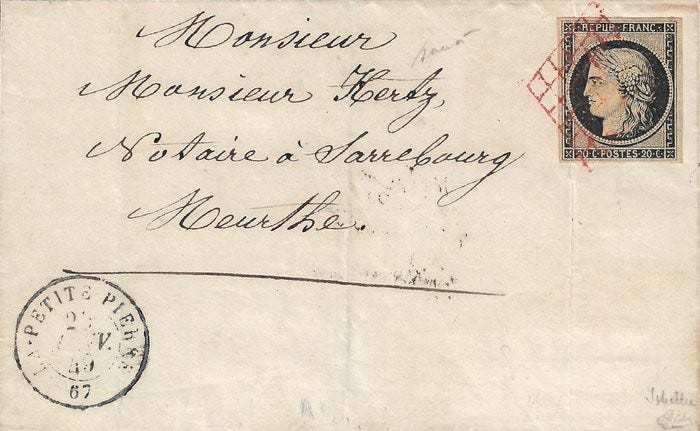 Monsieur
Monsieur Hertz,
Notaire à Sarrebourg
Meurthe.
REPUB. FRANC.
20.C. POSTES 20.C.
LA-PETITE PIERRE
49
67